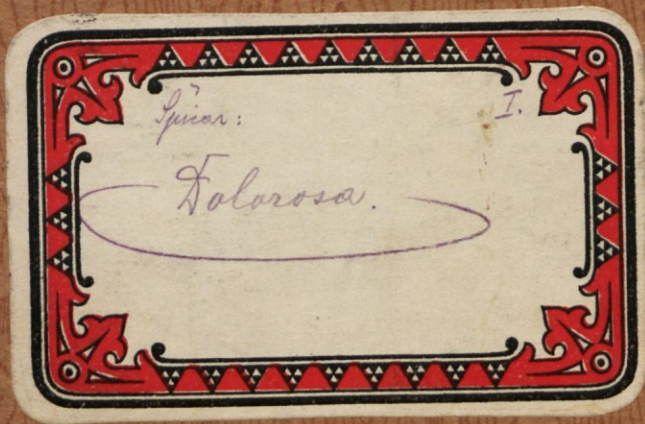 Špicar: I.
Dolorosa.